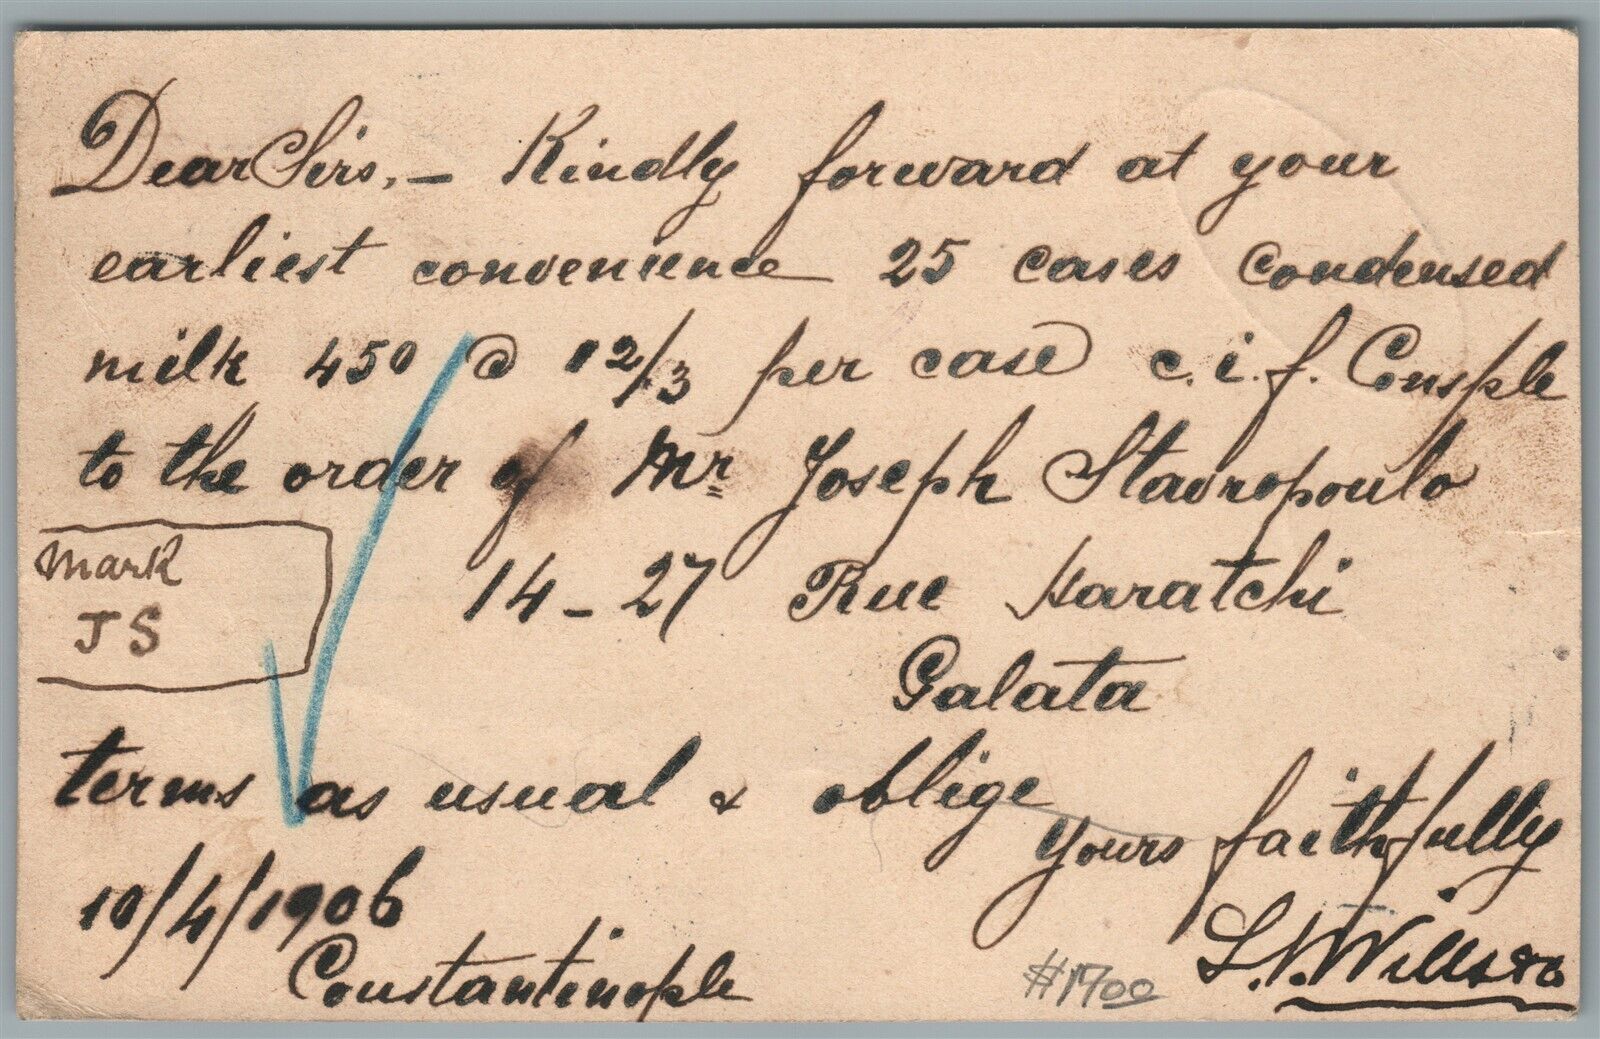 Dear Sirs, — Kindly forward at your
earliest convenience 25 cases condensed
milk 450 @ 12/3 per case c.i.f. Consple
to the order of Mr Joseph Stavropoulo
Mark
JS
14-27 Rue Haratchi
Galata
terms as usual & oblige
Yours faithfully
10/4/1906
Constantinople
#1700
Wills & Co